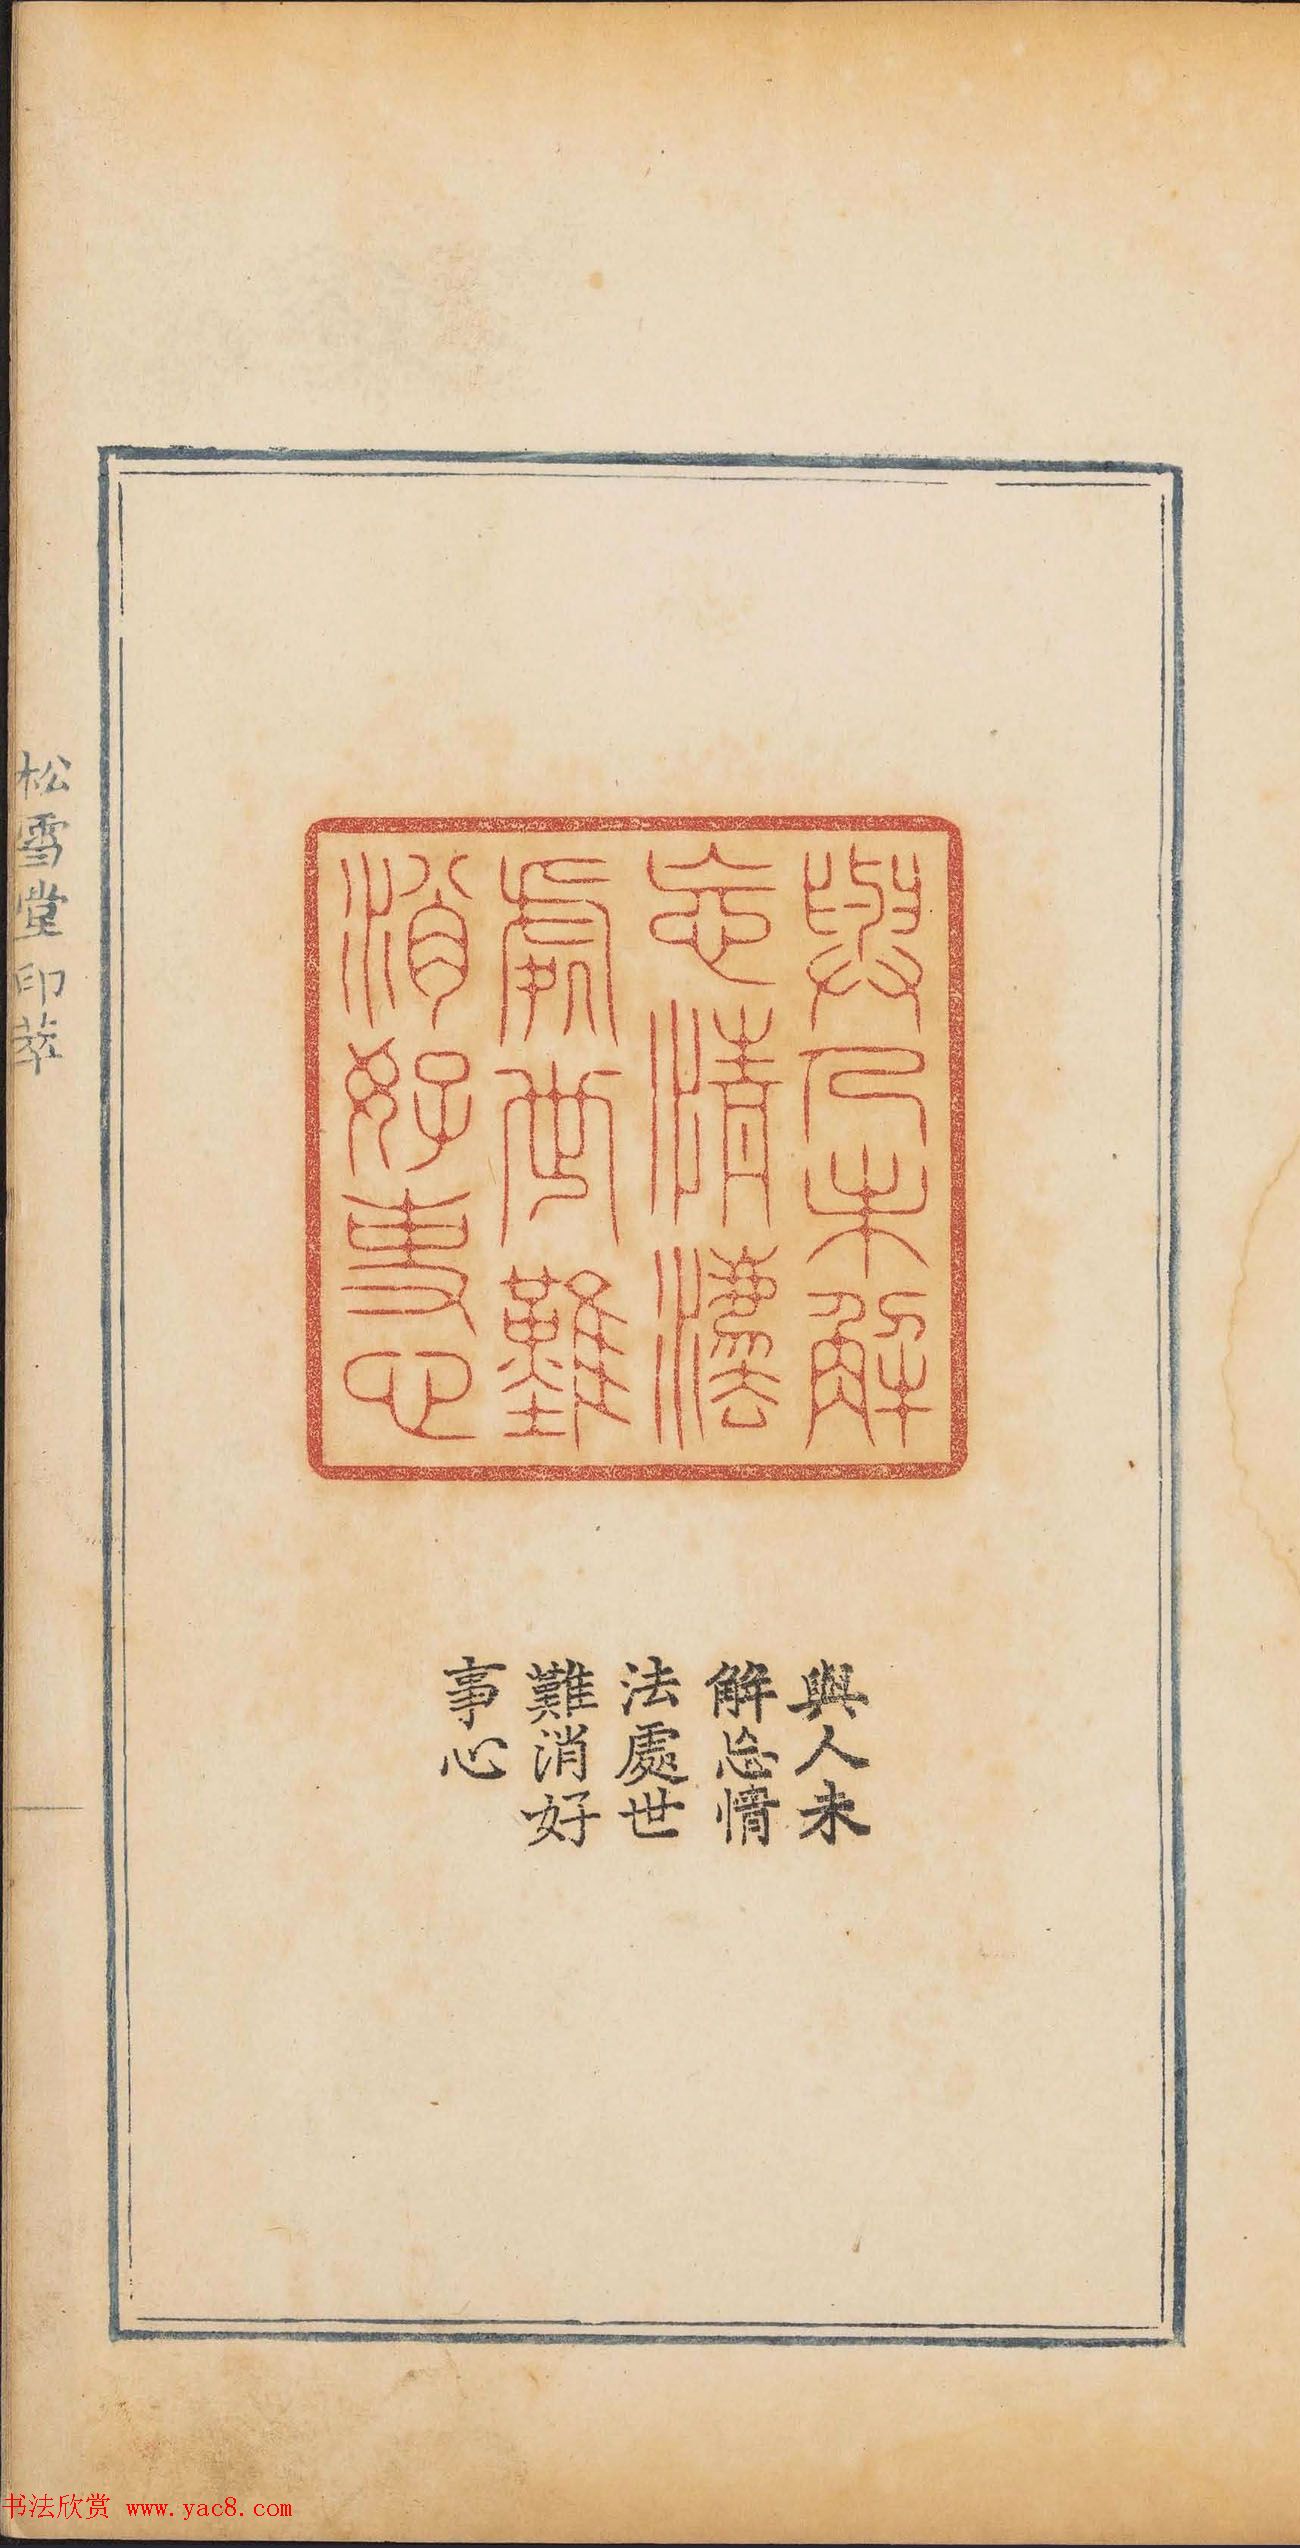 與人未解
忘情灋
處世難
消好事心
與人未
解忘情
法處世
難消好
事心
松雪堂印萃
书法欣赏 www.yac8.com